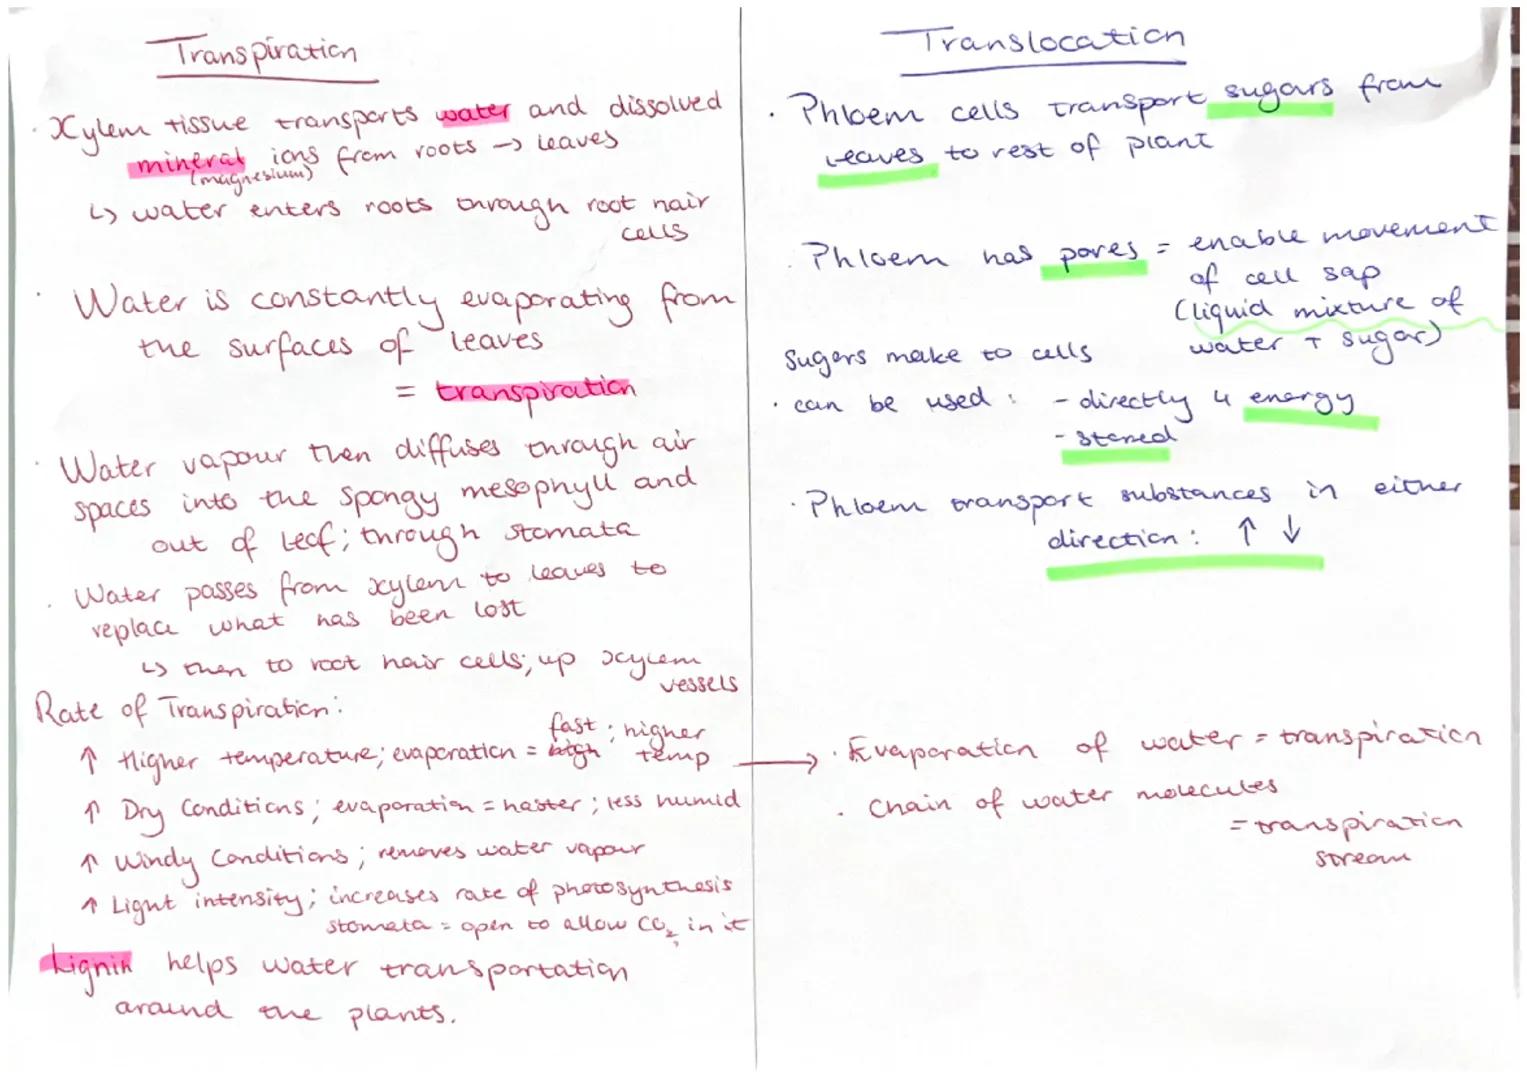 Transpiration
· Xylem tissue transports water and dissolved
mineral ions from roots → leaves
(magnesium)
↳ water enters roots through root hair
cells
· Water is constantly evaporating from
the surfaces of leaves
= transpiration
· Water vapour then diffuses through air
spaces into the spongy mesophyll and
out of leaf; through stomata
· Water passes from xylem to leaves to
replace what has been lost
↳ then to root hair cells; up xylem
vessels
Rate of Transpiration:
↑ Higher temperature; evaporation = high fast; higher
temp
↑ Dry Conditions; evaporation = haster; less humid
↑ Windy Conditions; removes water vapour
↑ Light intensity; increases rate of photosynthesis
stomata = open to allow CO₂ in it
Lignin helps water transportation
around the plants.
Translocation
· Phloem cells transport sugars from
leaves to rest of plant
· Phloem has pores = enable movement
of cell sap
(liquid mixture of
water + sugar)
Sugars make to cells
· can be used : - directly 4 energy
- stored
· Phloem transport substances in either
direction : ↑ ↓
→ · Evaporation of water = transpiration
· Chain of water molecules
= transpiration
stream